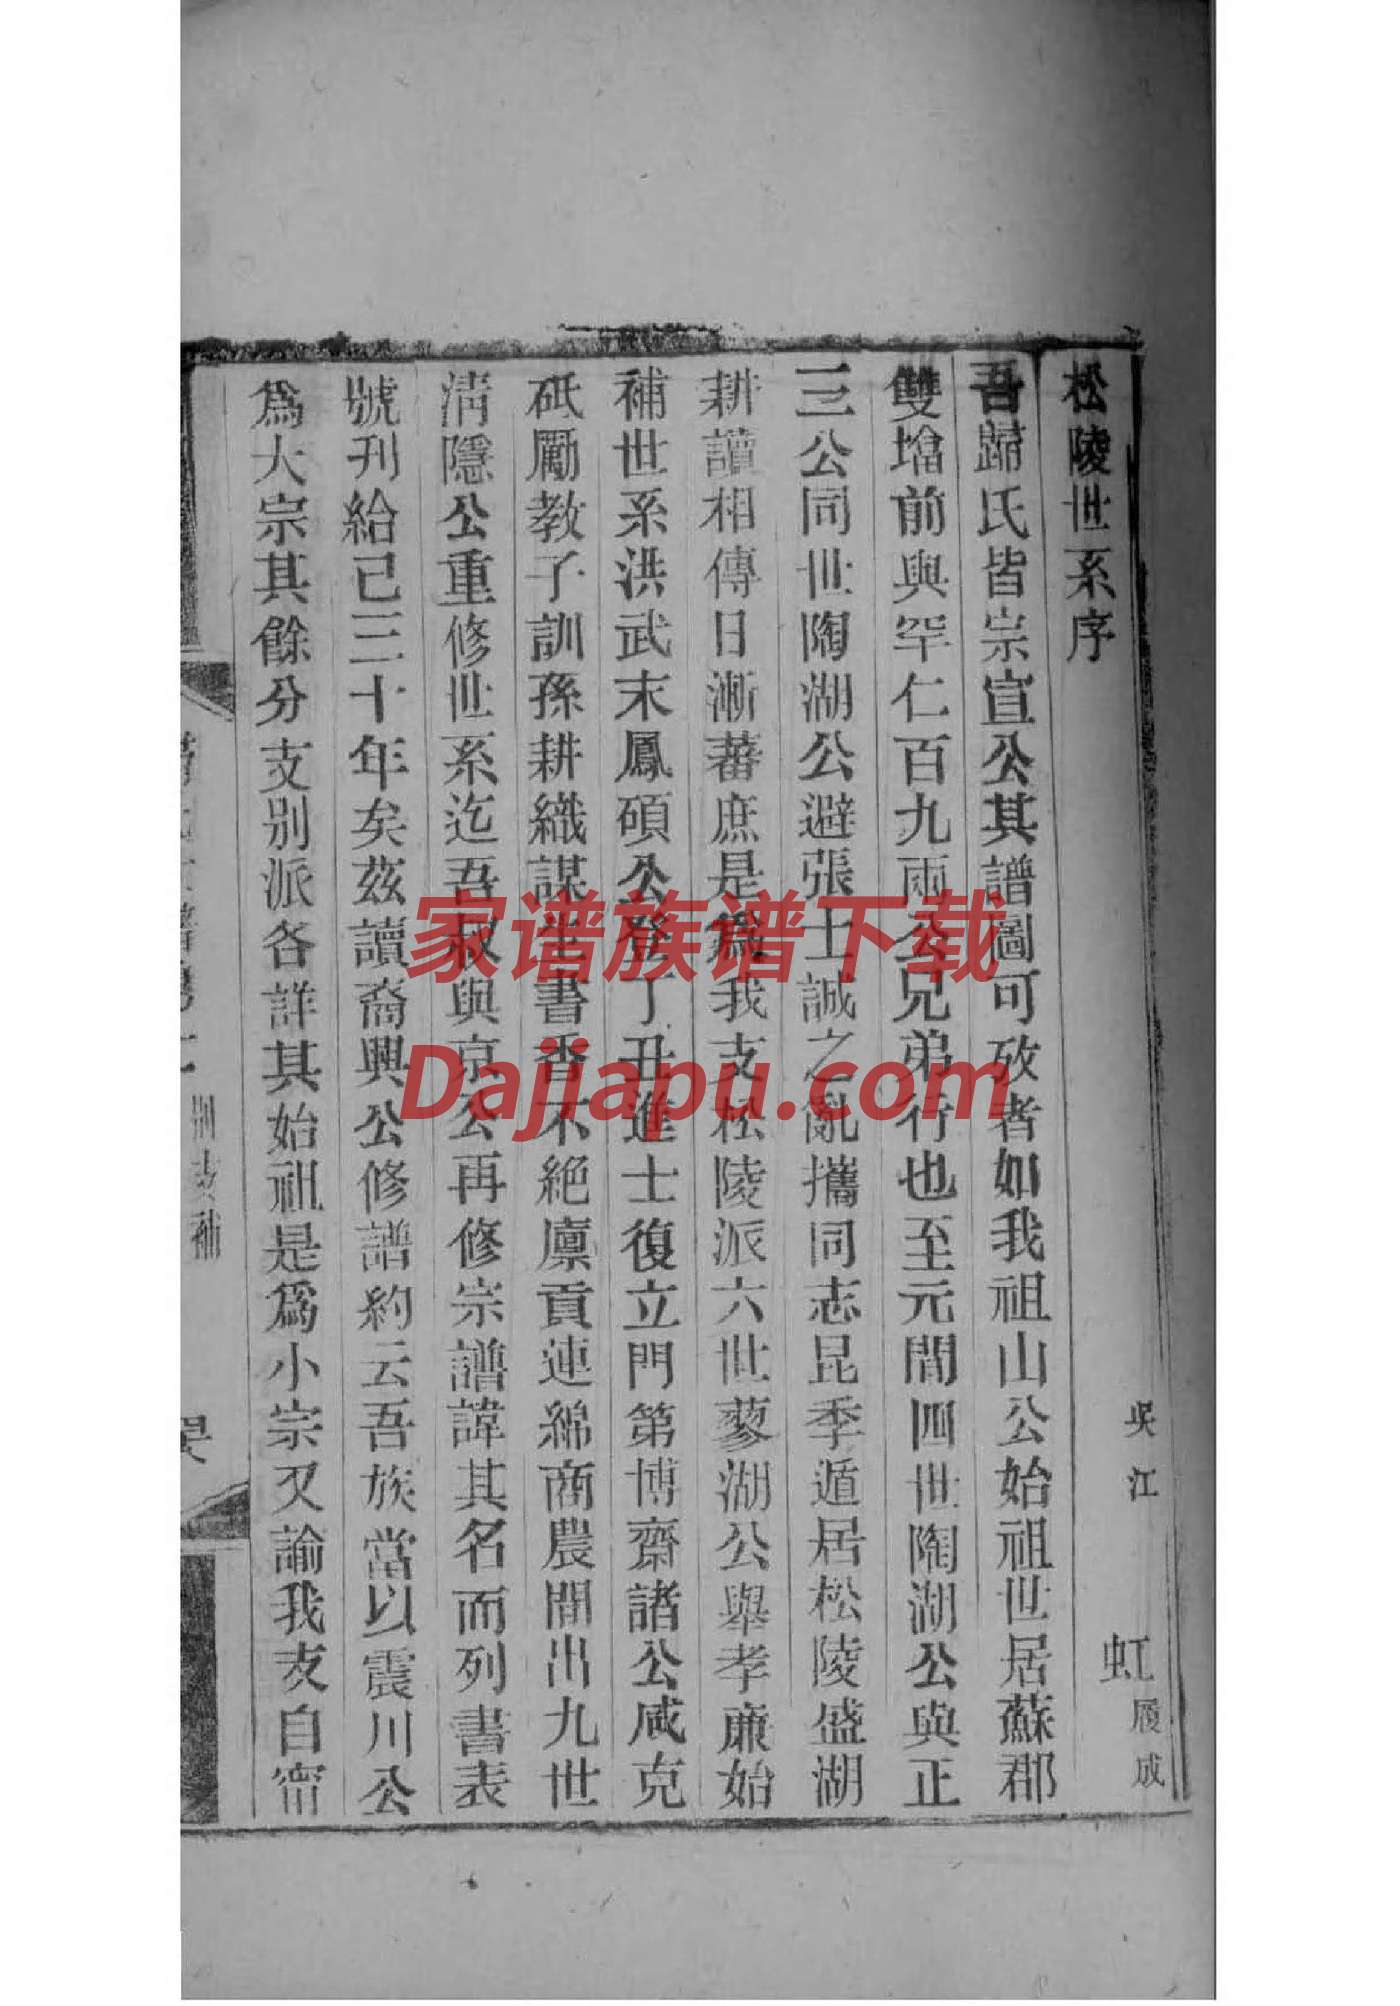 松陵世系序
吳江
虹
履成
吾歸氏皆宗宣公其譜圖可攷者如我祖山公始祖世居蘇郡
雙墖前與罕仁百九雨公兄弟行也至元間四世陶湖公與正
三公同世陶湖公避張士誠之亂攜同志昆季遁居松陵盛湖
耕讀相傳日漸蕃庶是爲我支松陵派六世蓼湖公舉孝廉始
補世系洪武末鳳碩公登丁丑進士復立門第博齋諸公咸克
砥勵教子訓孫耕織謀生書香不絕廩貢連綿商農間出九世
淸隱公重修世系迄吾叔與京公再修宗譜諱其名而列書表
號刊給已三十年矣茲讀裔興公修譜約云吾族當以震川公
爲大宗其餘分支別派各詳其始祖是爲小宗又諭我支自甯
家谱族谱下载
Dajiapu.com